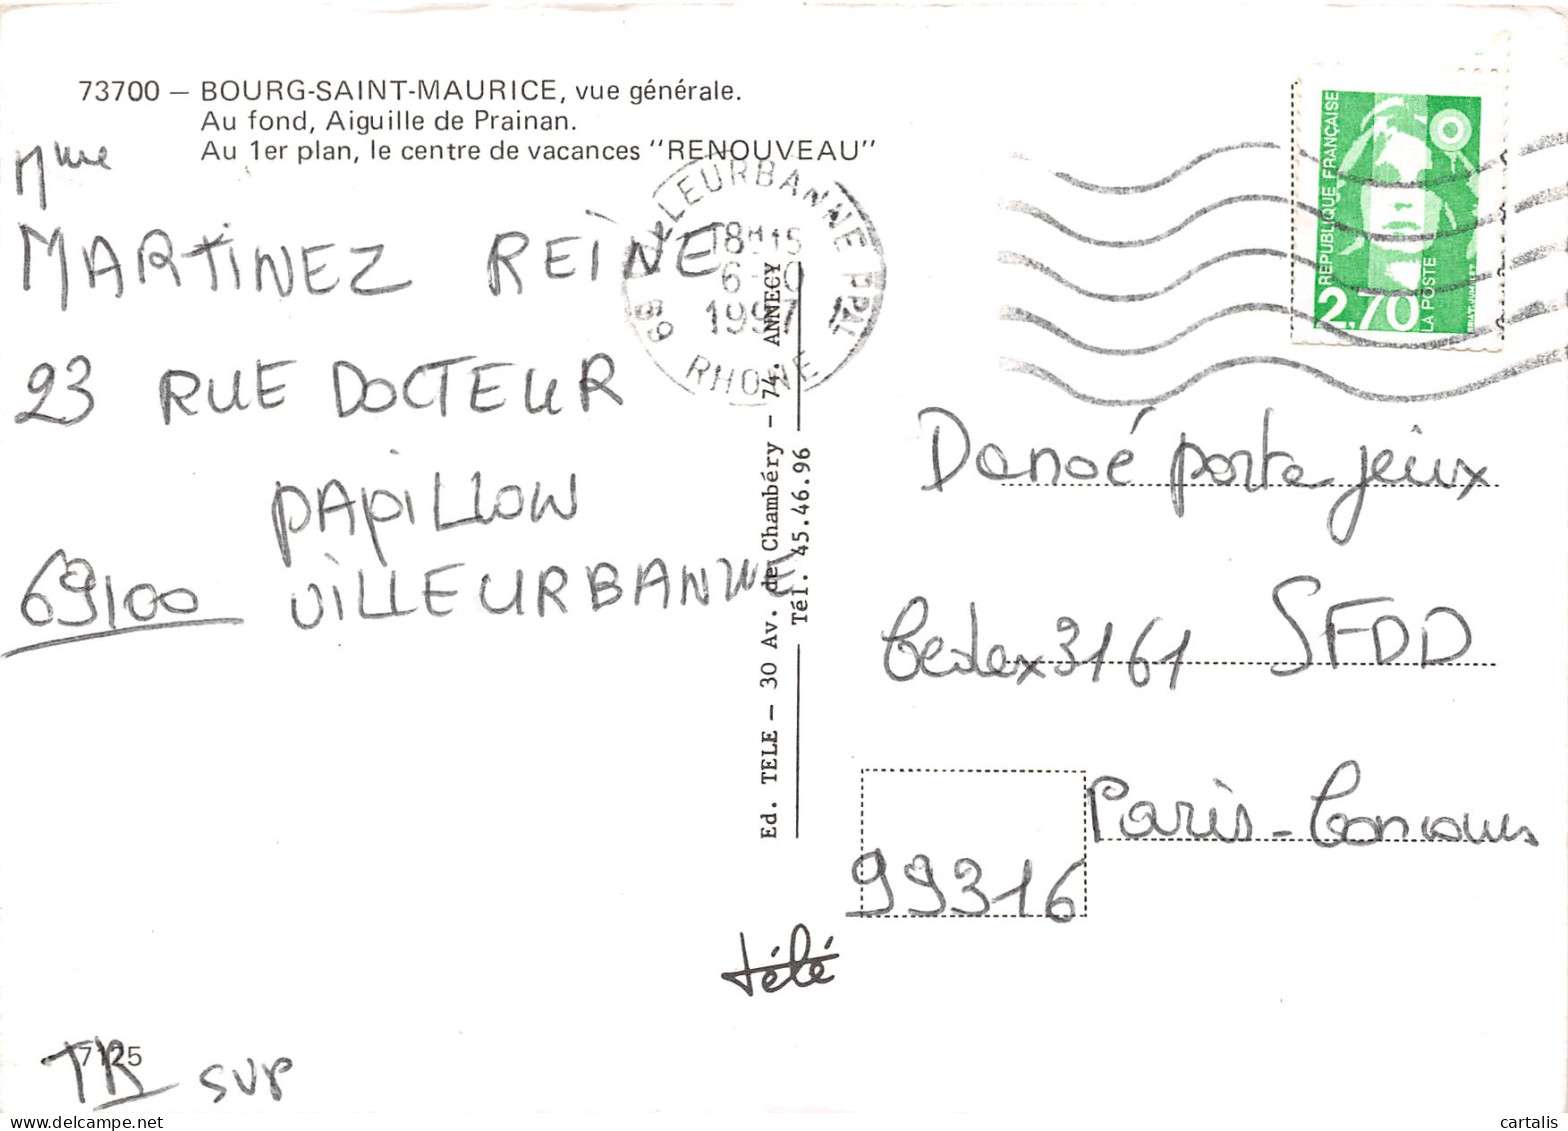 73700 — BOURG-SAINT-MAURICE, vue générale.
Au fond, Aiguille de Prainan.
Au 1er plan, le centre de vacances "RENOUVEAU"
Mme
MARTINEZ REINE
23 RUE DOCTEUR
PAPILLON
69100 VILLEURBANNE
VILLEURBANNE PPAL
18H15
1997
69 RHONE
Ed. TELE — 30 Av. de Chambéry — 74. ANNECY
Tél. 45.46.96
REPUBLIQUE FRANÇAISE
2,70
LA POSTE
Danoé porte jeux
Cedex 3161 SFDD
Paris - Concours
99316
télé
7125
TR svp
cartalis